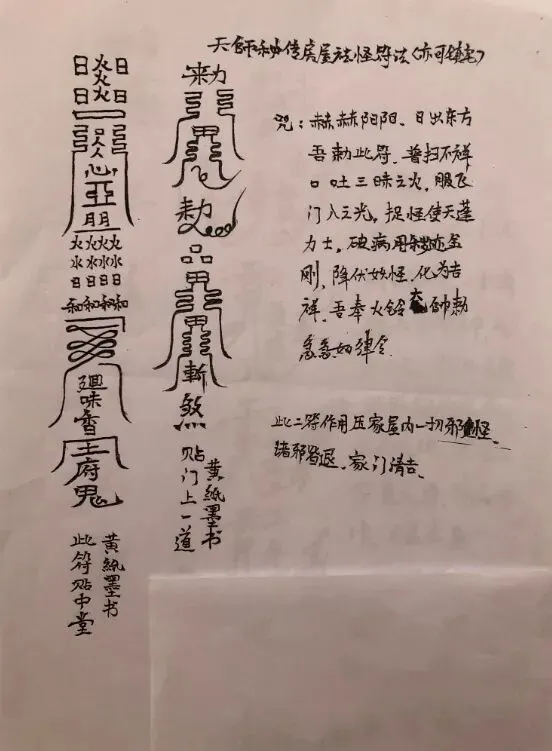 天师秘传房屋祛怪符法（亦可镇宅）
咒：赫赫阳阳、日出东方
吾勅此符、普扫不祥
口吐三昧之火，服飞
门入之光，捉怪使天蓬
力士，破病用 金
刚，降伏妖怪，化为吉
祥，吾奉火铃 帅勅
急急如律令
此二符作用压家屋内一切邪 怪
诸邪皆退、家门清吉、
日 日
日 日
火
火
火
心
亞
朋
火火火火
水水水水
日日日日
和和和和
廻
味
香
王
府
鬼
黄紙墨书
此符贴中堂
勅
甲
勅
品
甲
甲
斬
煞
黄紙墨书
贴门上一道